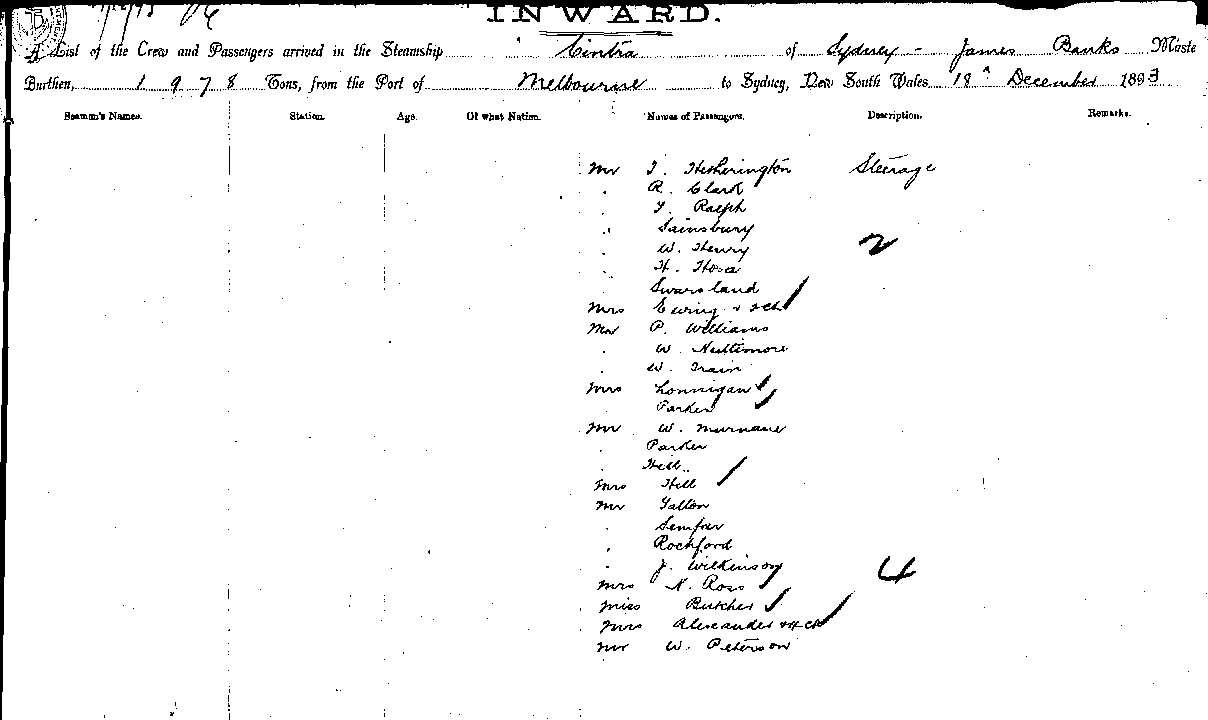 INWARD.
A List of the Crew and Passengers arrived in the Steamship Cintra of Sydney - James Banks Maste
Burthen, 1978 Tons, from the Port of Melbourne to Sydney, New South Wales 18 December 1893
Seamen's Names. Station. Age. Of what Nation. Names of Passengers. Description. Remarks.
Mr T. Hetherington Steerage
R. Clark
T. Ralph
Sainsbury
W. Henry 2
H.
Swarsland
Mrs Ewing + 2 Ch
Mr P. Williams
W.
W. Train
Mrs Lonnigan
Parker
Mr W. Murnane
Parker
Hill
Mrs Hill
Mr
Rochford
J. Wilkinson 4
Mrs N. Ross
Miss Butcher
Mrs Alexander + 4 Ch
Mr W. Peterson